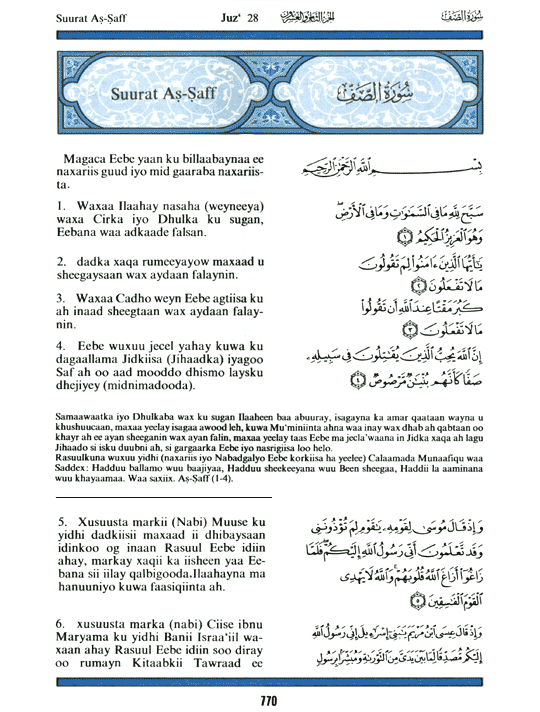 Suurat Aṣ-Ṣaff Juz' 28 الجزء الثامن والعشرون سُورَةُ الصَّفّ
Suurat Aṣ-Ṣaff سُورَةُ الصَّفّ
Magaca Eebe yaan ku billaabaynaa ee
naxariis guud iyo mid gaaraba naxariis-
ta.
بِسْمِ اللَّهِ الرَّحْمَٰنِ الرَّحِيمِ
1. Waxaa Ilaahay nasaha (weyneeya)
waxa Cirka iyo Dhulka ku sugan,
Eebana waa adkaade falsan.
سَبَّحَ لِلَّهِ مَا فِي السَّمَٰوَٰتِ وَمَا فِي الْأَرْضِ
وَهُوَ الْعَزِيزُ الْحَكِيمُ ١
2. dadka xaqa rumeeyayow maxaad u
sheegaysaan wax aydaan falaynin.
يَٰٓأَيُّهَا الَّذِينَ ءَامَنُوا لِمَ تَقُولُونَ
مَا لَا تَفْعَلُونَ ٢
3. Waxaa Cadho weyn Eebe agtiisa ku
ah inaad sheegtaan wax aydaan falay-
nin.
كَبُرَ مَقْتًا عِندَ اللَّهِ أَن تَقُولُوا
مَا لَا تَفْعَلُونَ ٣
4. Eebe wuxuu jecel yahay kuwa ku
dagaallama Jidkiisa (Jihaadka) iyagoo
Saf ah oo aad mooddo dhismo laysku
dhejiyey (midnimadooda).
إِنَّ اللَّهَ يُحِبُّ الَّذِينَ يُقَٰتِلُونَ فِي سَبِيلِهِ
صَفًّا كَأَنَّهُم بُنْيَٰنٌ مَّرْصُوصٌ ٤
Samaawaatka iyo Dhulkaba wax ku sugan Ilaaheen baa abuuray, isagayna ka amar qaataan wayna u
khushuucaan, maxaa yeelay isagaa awood leh, kuwa Mu'miniinta ahna waa inay wax dhab ah qabtaan oo
khayr ah ee ayan sheeganin wax ayan falin, maxaa yeelay taas Eebe ma jecla'waana in Jidka Xaqa ah lagu
Jihaado si isku duubni ah, si gargaarka Eebe iyo nasrigiisa loo helo.
Rasuulkuna wuxuu yidhi (naxariis iyo Nabadgalyo Eebe korkiisa ha yeelee) Calaamada Munaafiqu waa
Saddex: Hadduu ballamo wuu baajiyaa, Hadduu sheekeeyana wuu Been sheegaa, Haddii la aaminana
wuu khayaamaa. Waa saxiix. Aṣ-Ṣaff (1-4).
5. Xusuusta markii (Nabi) Muuse ku
yidhi dadkiisii maxaad ii dhibaysaan
idinkoo og inaan Rasuul Eebe idiin
ahay, markay xaqii ka iisheen yaa Ee-
bana sii iilay qalbigooda,Ilaahayna ma
hanuuniyo kuwa faasiqiinta ah.
وَإِذْ قَالَ مُوسَىٰ لِقَوْمِهِ يَٰقَوْمِ لِمَ تُؤْذُونَنِي
وَقَد تَّعْلَمُونَ أَنِّي رَسُولُ اللَّهِ إِلَيْكُمْ فَلَمَّا
زَاغُوا أَزَاغَ اللَّهُ قُلُوبَهُمْ وَاللَّهُ لَا يَهْدِي
الْقَوْمَ الْفَٰسِقِينَ ٥
6. xusuusta marka (nabi) Ciise ibnu
Maryama ku yidhi Banii Israa'iil wa-
xaan ahay Rasuul Eebe idiin soo diray
oo rumayn Kitaabkii Tawraad ee
وَإِذْ قَالَ عِيسَى ابْنُ مَرْيَمَ يَٰبَنِي إِسْرَٰٓءِيلَ إِنِّي رَسُولُ اللَّهِ
إِلَيْكُم مُّصَدِّقًا لِّمَا بَيْنَ يَدَيَّ مِنَ التَّوْرَىٰةِ وَمُبَشِّرًا بِرَسُولٍ
770